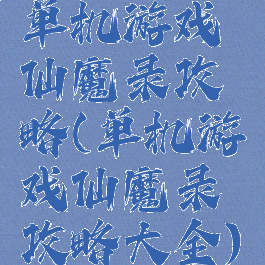 单机游戏
仙魔录攻
略(单机游
戏仙魔录
攻略大全)